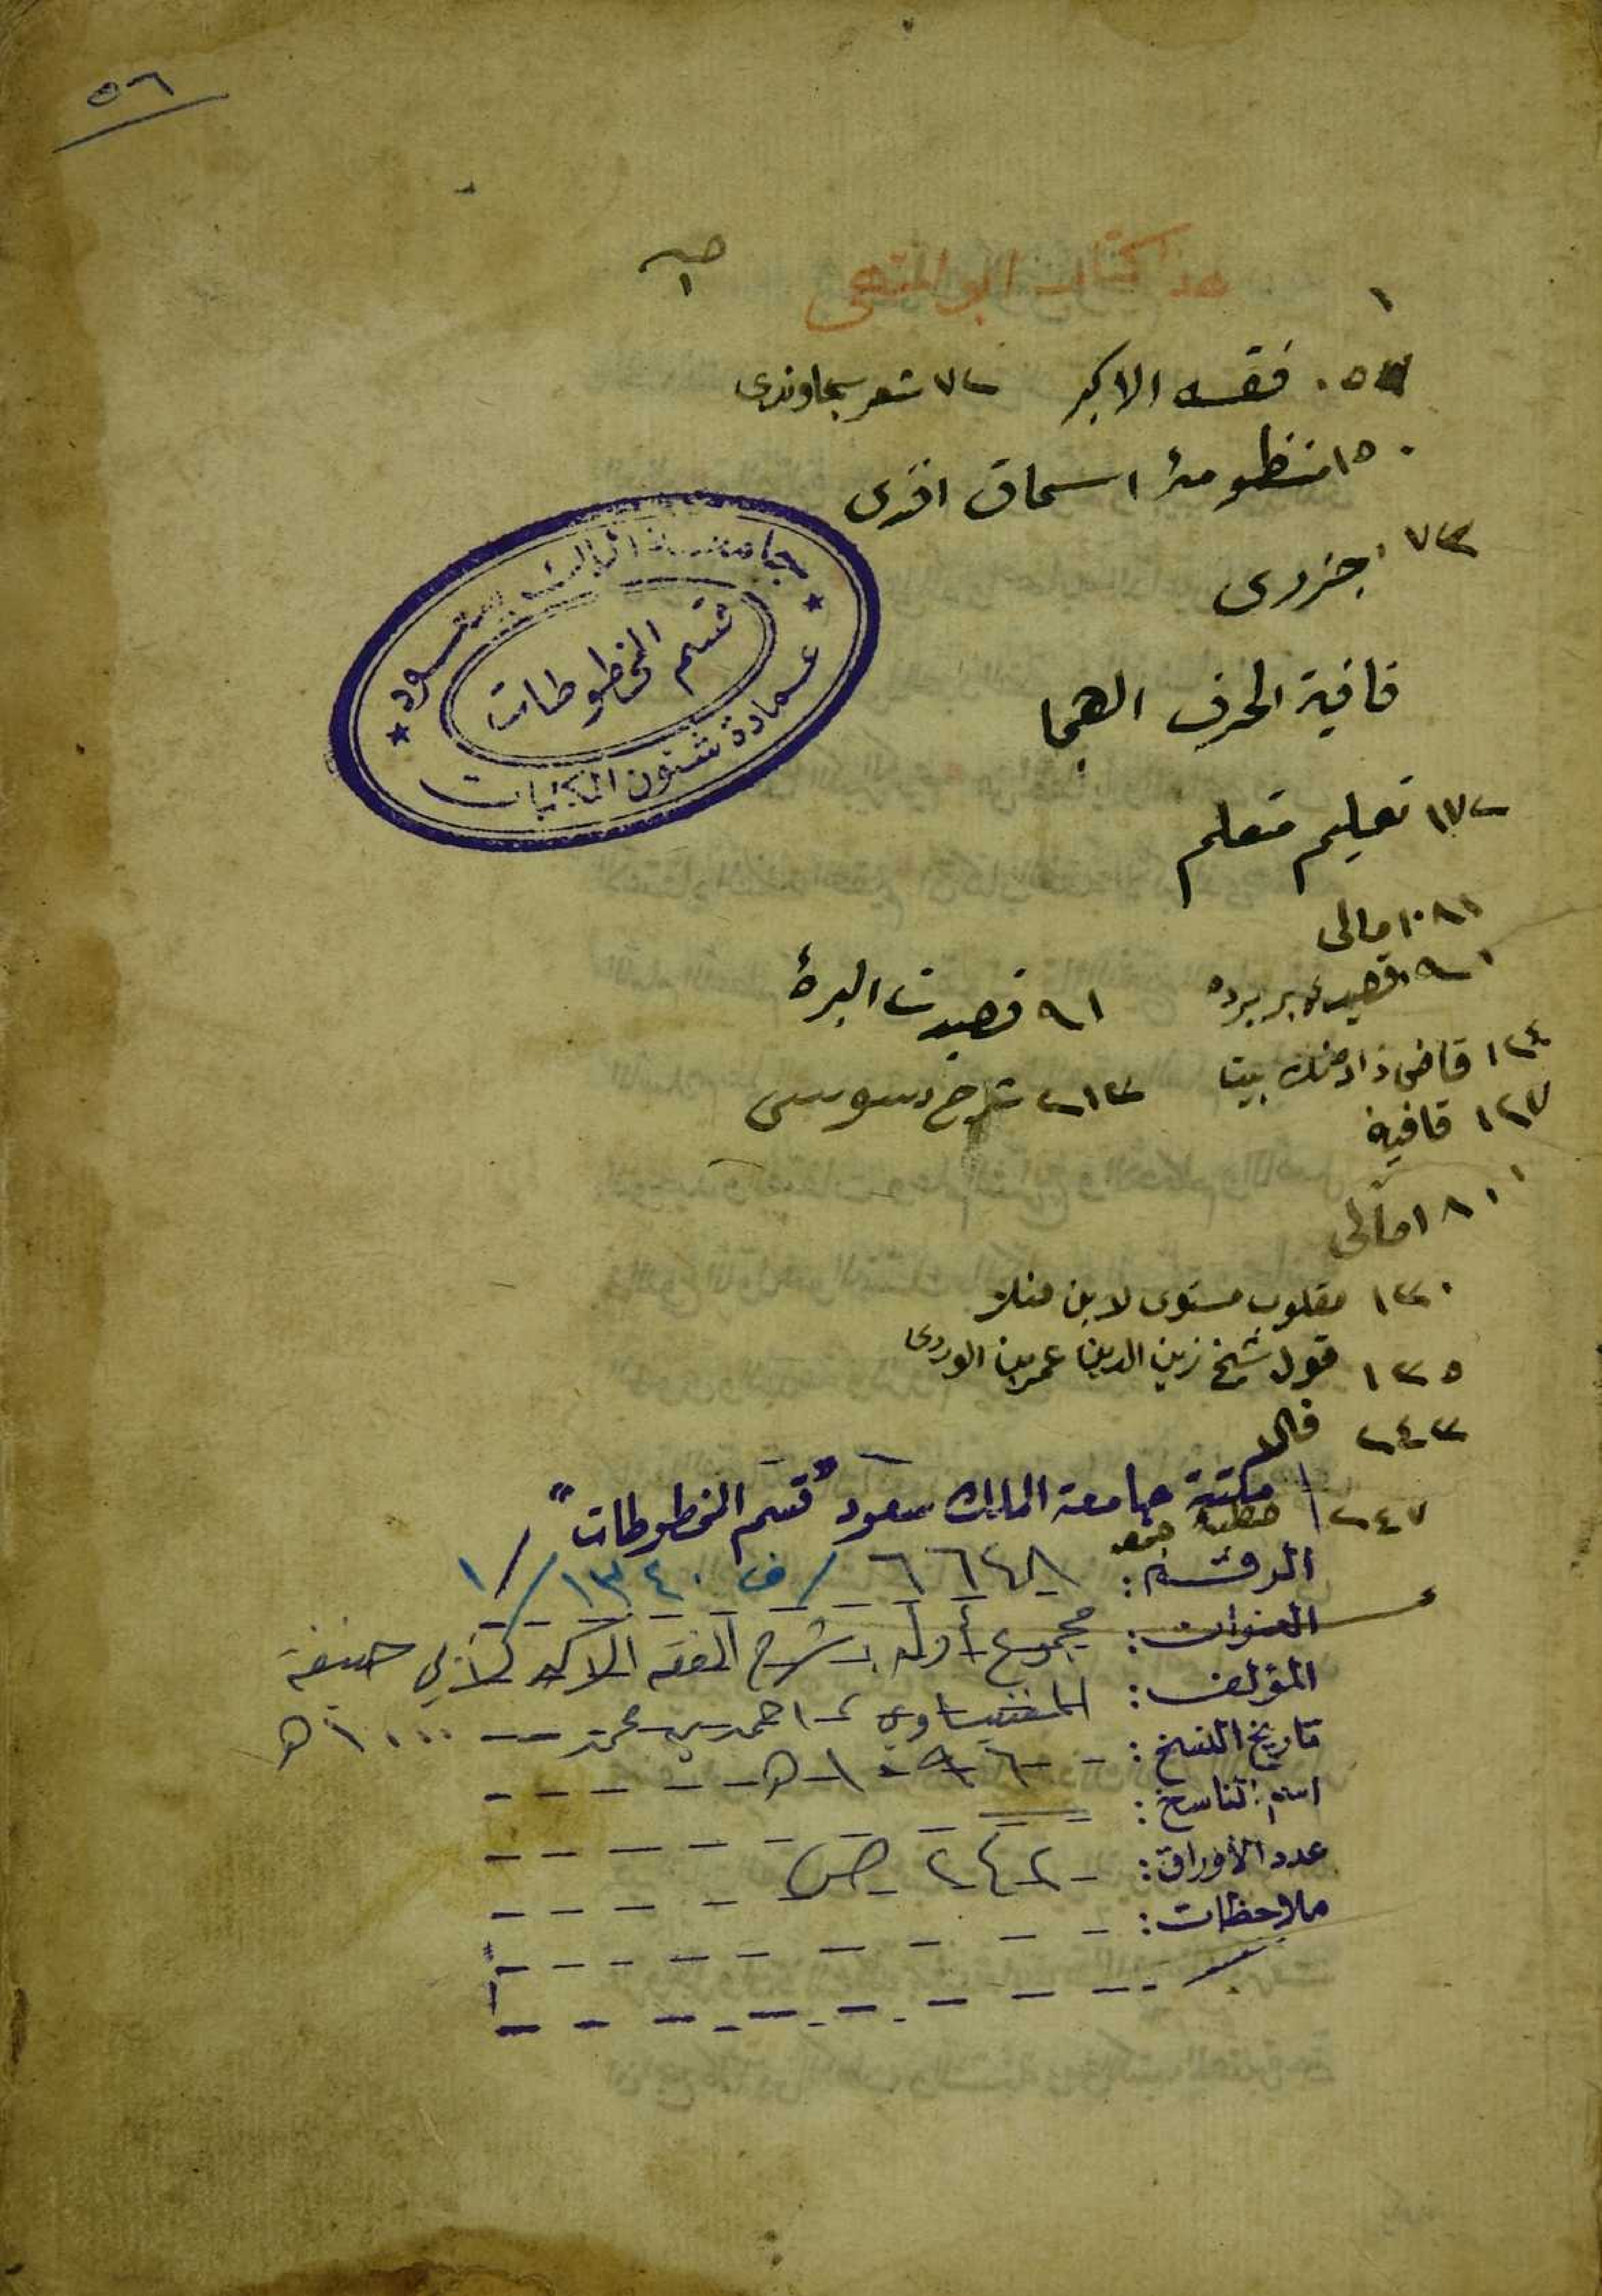 ٥٦
هذا كتاب ابو المنتهى
١
٥٧ فقه الاكبر
٧٢ شعر سجاوندى
٥١ منظومۀ اسحاق افندى
٧٣ جزرى
قافية الحرف الهجا
١٧٢ تعليم متعلم
امالى
٩١ قصيدت البرۀ
١٢٤ قاضى زاده
بيت
٢١٣ شرح سوسى
١٢٧ قافيه
امالى
١٣٠ مقلوب مستوى لابن
١٣٥ قول شيخ زين الدين عمر بن الوردى
٢٤٣ قال
٢٤٧ خطبه جمعه
جامعة الملك سعود
قسم المخطوطات
عمادة شئون المكتبات
مكتبة جامعة الملك سعود "قسم المخطوطات"
الرقم: ٦٦٤٨ / ف ١٣٤٠ / ١
العنوان: مجموع أوله: شرح الفقه الاكبر لأبي حنيفة
المؤلف: المغنيساوي، احمد بن محمد - ١٠٠٠ هـ
تاريخ النسخ: ١٠٩٦ هـ
اسم الناسخ:
عدد الأوراق: ٢٤٢ ص
ملاحظات: